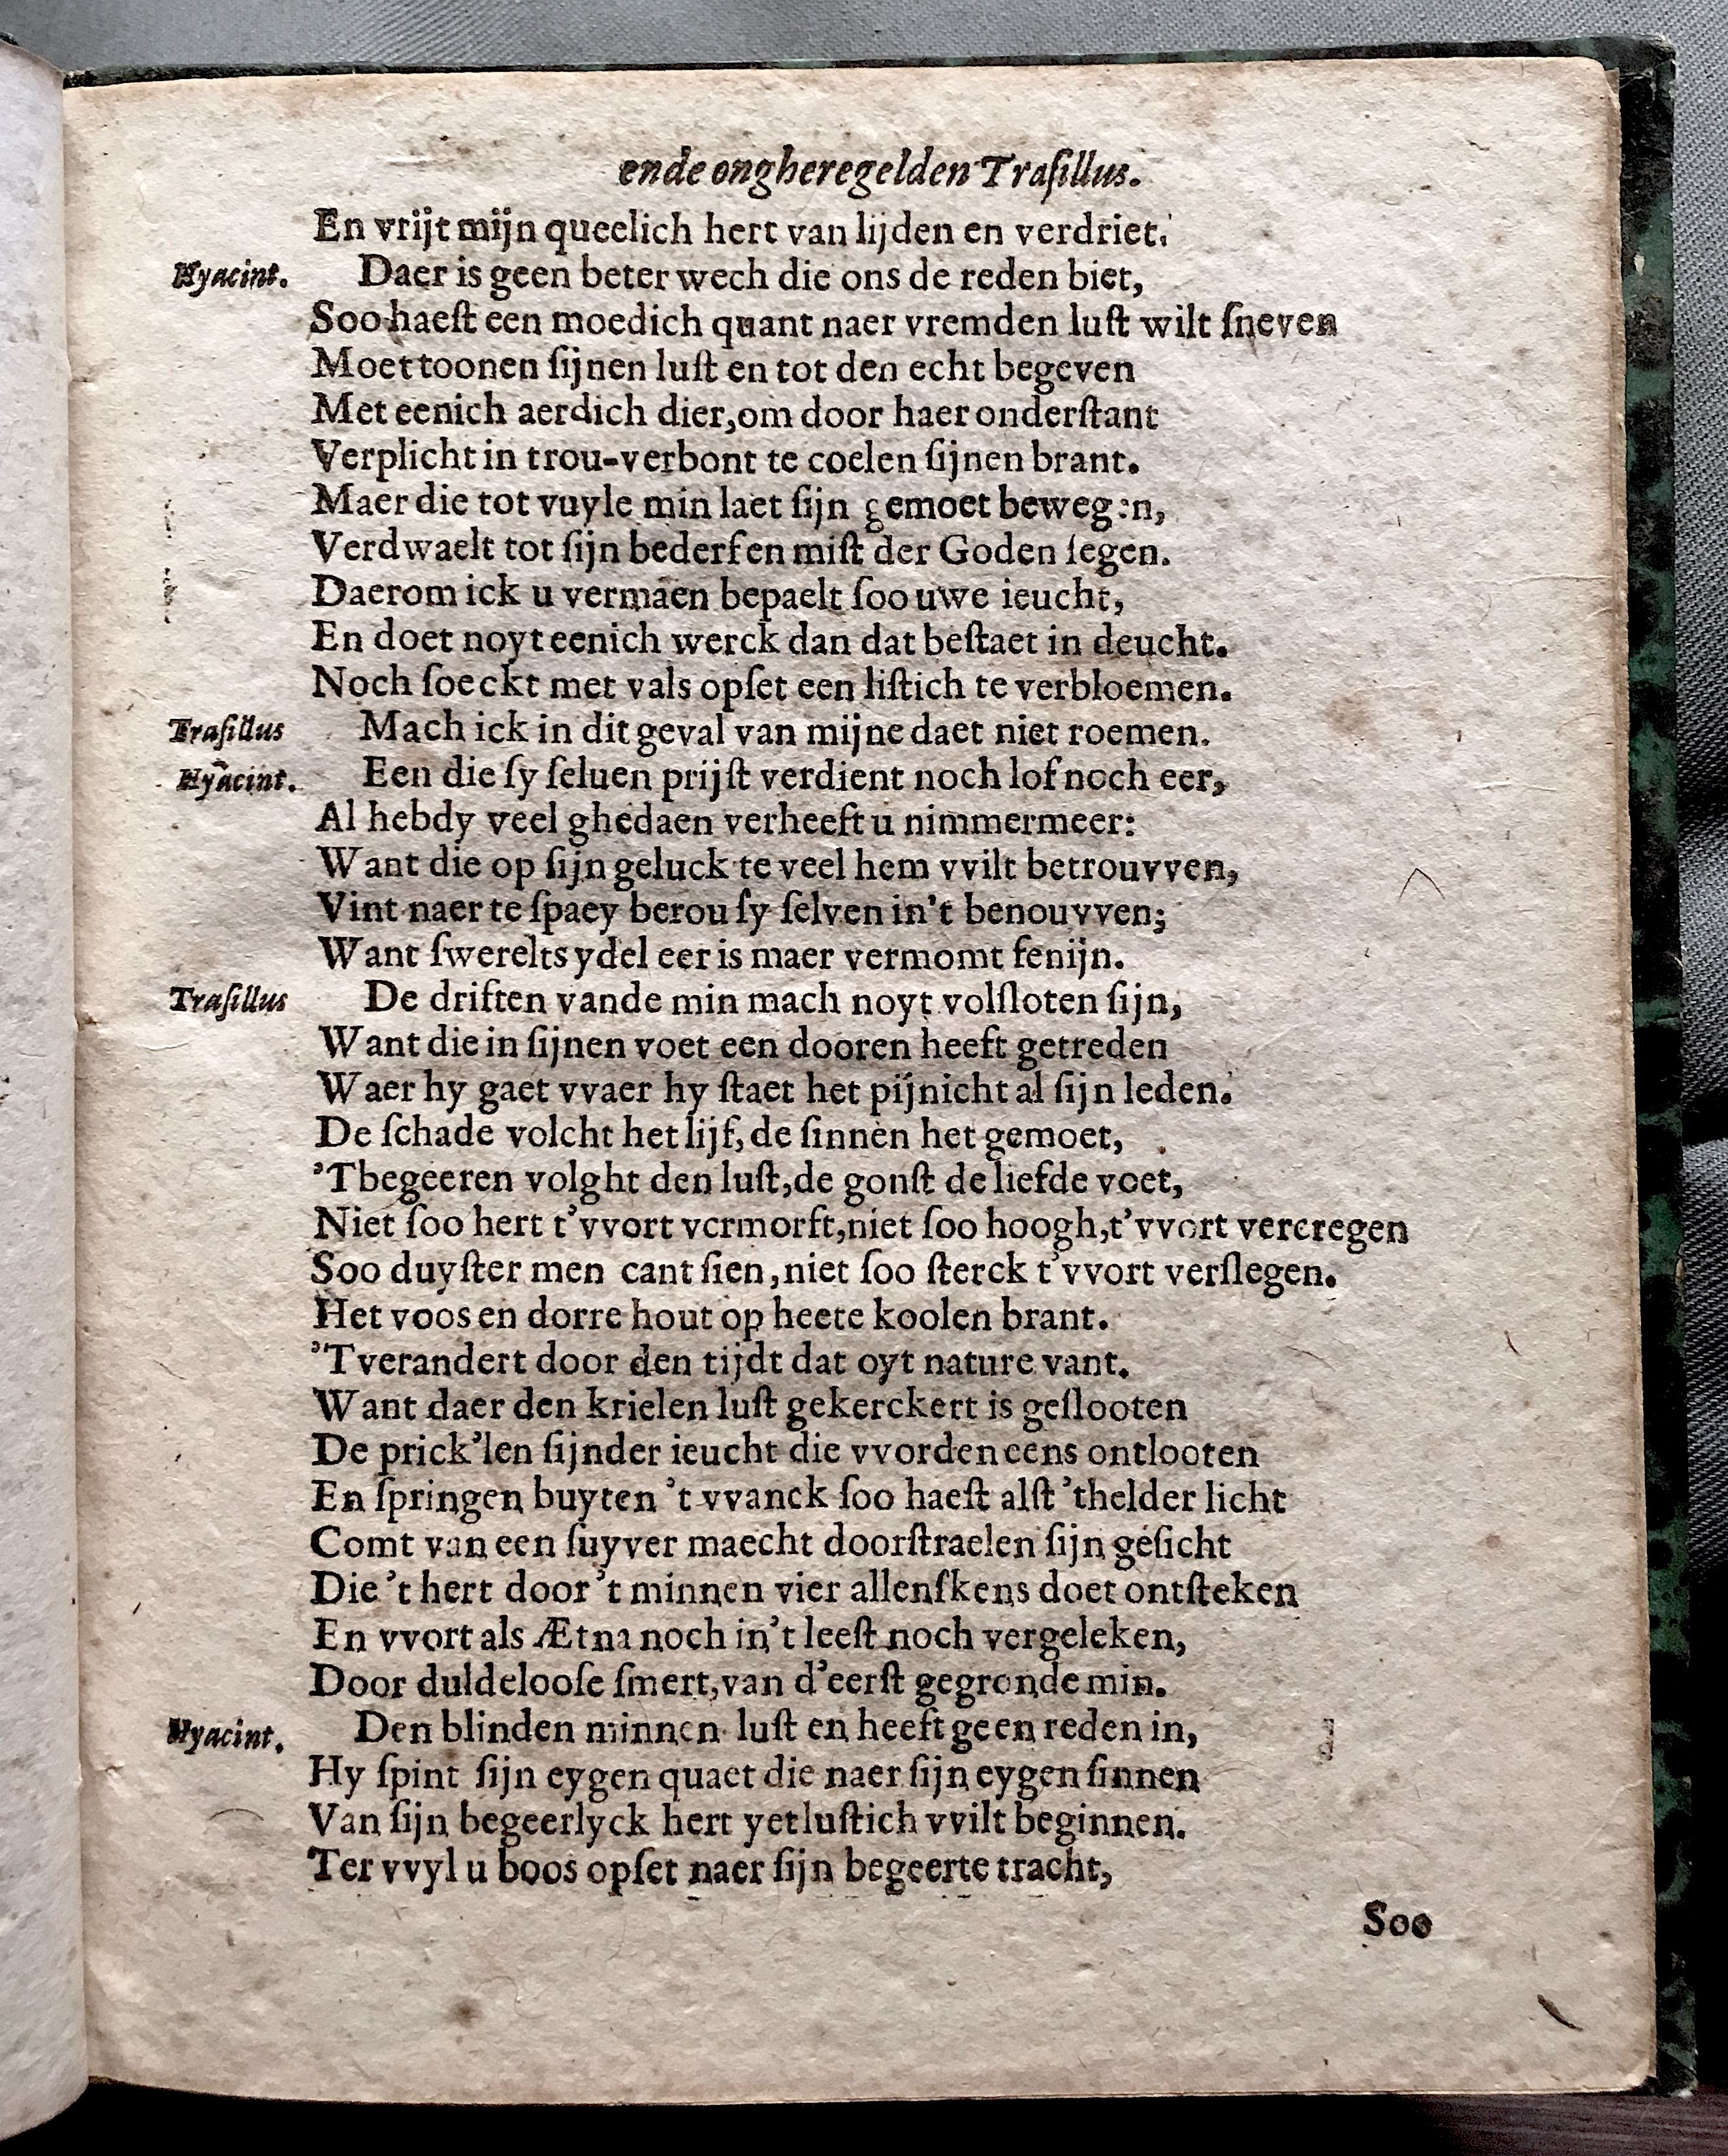 ende ongheregelden Traſillus.
En vrijt mijn queelich hert van lijden en verdriet.
Hyacint. Daer is geen beter wech die ons de reden biet,
Soo haeſt een moedich quant naer vremden luſt wilt ſneven
Moet toonen ſijnen luſt en tot den echt begeven
Met eenich aerdich dier, om door haer onderſtant
Verplicht in trou-verbont te coelen ſijnen brant.
Maer die tot vuyle min laet ſijn gemoet bewegen,
Verdwaelt tot ſijn bederf en miſt der Goden ſegen.
Daerom ick u vermaen bepaelt ſoo uwe ieucht,
En doet noyt eenich werck dan dat beſtaet in deucht.
Noch ſoeckt met vals opſet een liſtich te verbloemen.
Traſillus Mach ick in dit geval van mijne daet niet roemen.
Hyacint. Een die ſy ſeluen prijſt verdient noch lof noch eer,
Al hebdy veel ghedaen verheeft u nimmermeer:
Want die op ſijn geluck te veel hem vvilt betrouvven,
Vint naer te ſpaey berou ſy ſelven in't benouvven;
Want ſwerelts ydel eer is maer vermomt fenijn.
Traſillus De driften vande min mach noyt volſloten ſijn,
Want die in ſijnen voet een dooren heeft getreden
Waer hy gaet vvaer hy ſtaet het pijnicht al ſijn leden.
De ſchade volcht het lijf, de ſinnen het gemoet,
'Tbegeeren volght den luſt, de gonſt de liefde voet,
Niet ſoo hert t'vvort vermorft, niet ſoo hoogh, t'vvort vercregen
Soo duyſter men cant ſien, niet ſoo ſterck t'vvort verſlegen.
Het voos en dorre hout op heete koolen brant.
'Tverandert door den tijdt dat oyt nature vant.
Want daer den krielen luſt gekerckert is geſlooten
De prick'len ſijnder ieucht die vvorden eens ontlooten
En ſpringen buyten 't vvanck ſoo haeſt alſt 'thelder licht
Comt van een ſuyver maecht doorſtraelen ſijn geſicht
Die 't hert door 't minnen vier allenſkens doet ontſteken
En vvort als Ætna noch in't leeſt noch vergeleken,
Door duldelooſe ſmert, van d'eerſt gegronde min.
Hyacint. Den blinden minnen luſt en heeft geen reden in,
Hy ſpint ſijn eygen quaet die naer ſijn eygen ſinnen
Van ſijn begeerlyck hert yet luſtich vvilt beginnen.
Ter vvyl u boos opſet naer ſijn begeerte tracht,
Soo